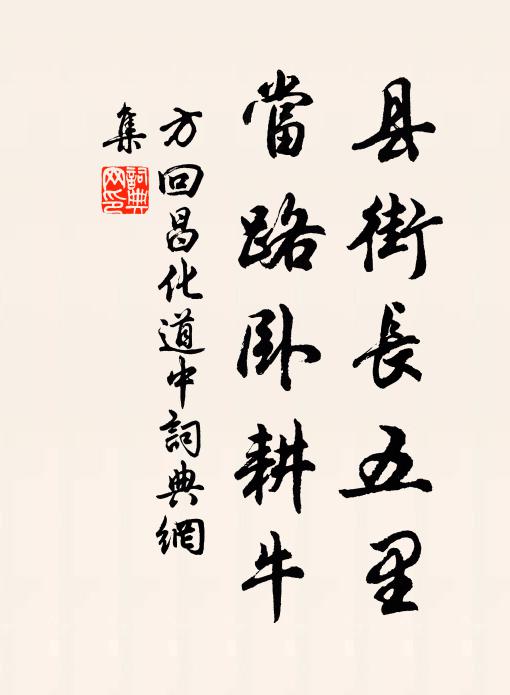 县街長五里
當路卧耕牛
方回昌化道中詞典網
集
詞典
网印